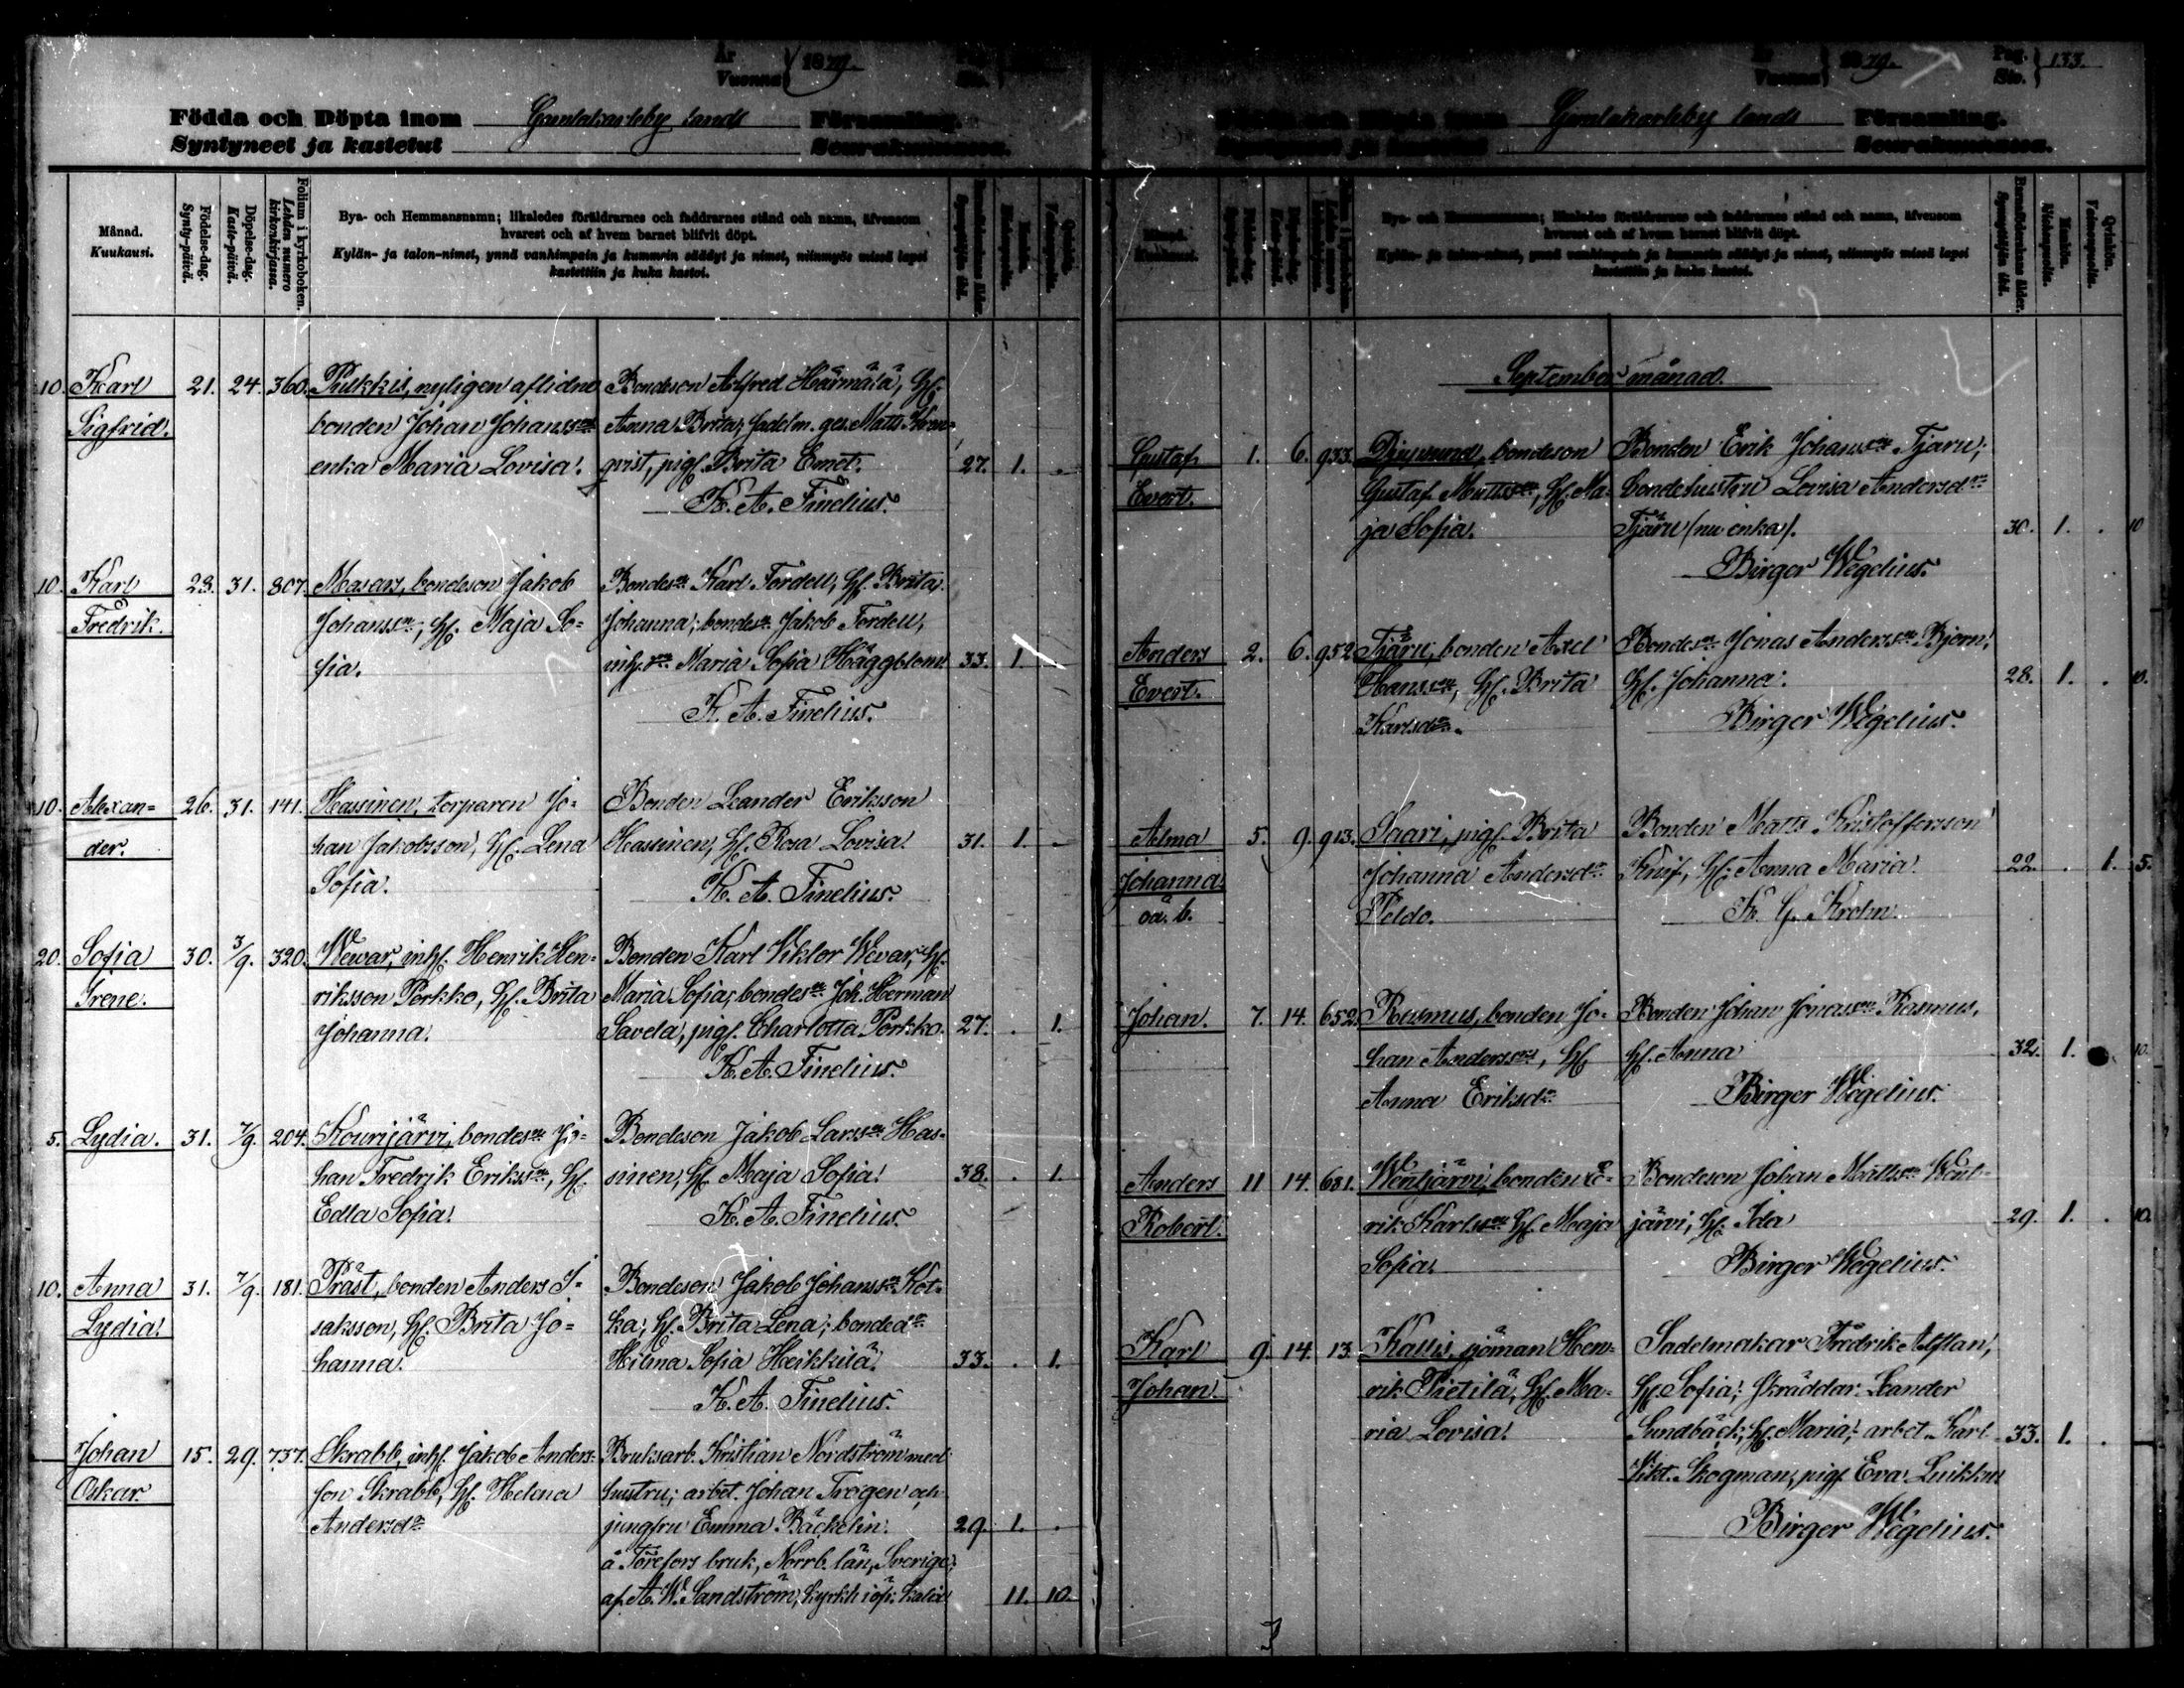 År
Vuonna 1879.
Födda och Döpta inom Gamlakarleby lands Församling.
Syntyneet ja kastetut Seurakunnassa.
Månad.
Kuukausi.
Födelse-dag.
Synty-päivä.
Döpelse-dag.
Kaste-päivä.
Folium i kyrkoboken.
Lehden numero kirkonkirjassa.
Bya- och Hemmansnamn; likaledes föräldrarnes och faddrarnes stånd och namn, äfvensom
hvarest och af hvem barnet blifvit döpt.
Kylän- ja talon-nimet, ynnä vanhimpain ja kummein säädyt ja nimet, niinmyös missä lapsi
kastettiin ja kuka kastoi.
10. Karl 21. 24. 360. Pulkkis, nyligen aflidne Bondeson Alfred Härmälä, Hf.
Sigfrid. bonden Johan Johansson Anna Brita; sadelm. ges. Matts Kron-
enka Maria Lovisa. qvist, pigf. Brita Emet. 27. 1.
K. A. Finelius.
10. Karl 23. 31. 807. Masars, bondeson Jakob Bondeson Karl Fordell, Hf. Brita
Fredrik. Johansson, Hf. Maja So- Johanna; bondeson Jakob Fordell,
fia. Maria Sofia Häggblom 33. 1.
K. A. Finelius.
10. Alexan- 26. 31. 141. Hassinen, torparen Jo- Bonden Leander Eriksson
der. han Jakobsson, Hf. Lena Hassinen, Hf. Rosa Lovisa. 31. 1.
Sofia. K. A. Finelius.
20. Sofia 30. 3/9. 320. Wewar, inhs. Henrik Hen- Bonden Karl Viktor Wevar, Hf.
Irene. riksson Porkko, Hf. Brita Maria Sofia; bondeson Joh. Herman
Johanna. Savela, pigf. Charlotta Porkko. 27. . 1.
K. A. Finelius.
5. Lydia. 31. 7/9. 204. Kourijärvi, bondeson Jo- Bondeson Jakob Larsson Has-
han Fredrik Eriksson, Hf. sinen, Hf. Maja Sofia. 38. . 1.
Edla Sofia. K. A. Finelius.
10. Anna 31. 7/9. 181. Präst, bonden Anders I- Bondeson Jakob Johansson Kot-
Lydia. saksson, Hf. Brita Jo- ka, Hf. Brita Lena;
hanna. Hilma Sofia Heikkilä. 33. . 1.
K. A. Finelius.
Johan 15. 29. 737. Skrabb, inhs. Jakob Anders- Bruksarb. Kristian Nordström med
Oskar. son Skrabb, Hf. Helena hustru; arbet. Johan Trogen och
Andersdr jungfru Emma Bäckelin. 29. 1. .
å Törefors bruk, Norrb. län, Sverige;
af A. W. Sandström, kyrkh. i Kalix 11. 10.
År
Vuonna 1879. Pag.
Siv. 133.
Födda och Döpta inom Gamlakarleby lands Församling.
Syntyneet ja kastetut Seurakunnassa.
Månad.
Kuukausi.
Bya- och Hemmansnamn; likaledes föräldrarnes och faddrarnes stånd och namn, äfvensom
hvarest och af hvem barnet blifvit döpt.
Kylän- ja talon-nimet, ynnä vanhimpain ja kummein säädyt ja nimet, niinmyös missä lapsi
kastettiin ja kuka kastoi.
Barnföderskans ålder.
Synnyttäjän ikä.
Mankön.
Miehenpuolia.
Qvinkön.
Vaimonpuolia.
September månad.
Gustaf 1. 6. 933. Djupsund, bondeson Bonden Erik Johansson Tjäru;
Evert. Gustaf Mattsson, Hf. Ma- bondehustru Lovisa Andersdr
ja Sofia. Tjäru (nu enka). 30. 1. . 10
Birger Wegelius.
Anders 2. 6. 952. Tjäru, bonden Axel Bondeson Jonas Andersson Björn,
Evert. Hansson, Hf. Brita Hf. Johanna. 28. 1. . 10.
Karlsdr. Birger Wegelius.
Alma 5. 9. 913. Saari, pigf. Brita Bonden Matts Kristoffersson
Johanna Johanna Andersdr Knif, Hf. Anna Maria. 22. . 1. 5.
oä. b. Peldo. Fr. G. Krolm.
Johan. 7. 14. 652. Rasmus, bonden Jo- Bonden Johan Jonasson Rasmus,
han Andersson, Hf. Hf. Anna 32. 1. 10.
Anna Eriksdr Birger Wegelius.
Anders 11 14. 681. Wentjärvi, bonden Eric- Bondeson Johan Mattsson Went-
Robert. rik Karlsson Hf. Maja järvi, Hf. Ida 29. 1. . 10.
Sofia. Birger Wegelius.
Karl 9. 14. 13. Kallis, sjöman Hen- Sadelmakar Fredrik Alftan,
Johan. rik Pietilä, Hf. Ma- Hf. Sofia; skräddar. Leander
ria Lovisa. Sundbäck, Hf. Maria; arbet. Karl 33. 1. .
Vikt. Skogman, pigf. Eva Luikku
Birger Wegelius.